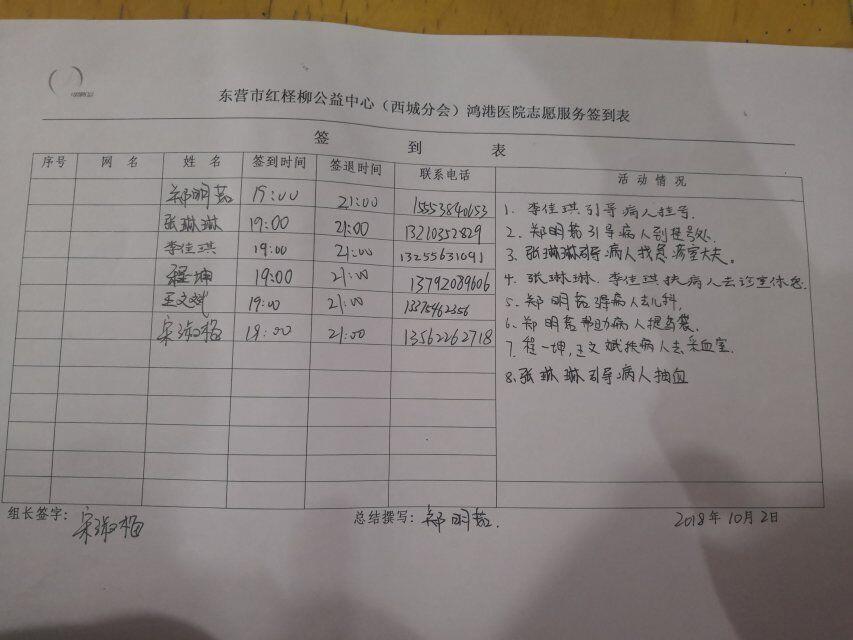 东营市红柽柳公益中心（西城分会）鸿港医院志愿服务签到表
签 到 表
序号 网 名 姓 名 签到时间 签退时间 联系电话 活 动 情 况
郑明茹 19:00 21:00 15553840653
张琳琳 19:00 21:00 13210352829
李佳琪 19:00 21:00 13255631091
程坤 19:00 21:00 13792089606
王文斌 19:00 21:00
宋淑梅 18:00 21:00 13562262718
1. 李佳琪引导病人挂号.
2. 郑明茹引导病人到挂号处.
3. 张琳琳引导病人找急诊室大夫。
4. 张琳琳.李佳琪扶病人去诊室休息
5. 郑明茹 病人去儿科.
6. 郑明茹帮助病人提 袋.
7. 程一坤,王文斌扶病人去采血室.
8. 张琳琳引导病人抽血
组长签字: 宋淑梅 总结撰写: 郑明茹. 2018年10月2日